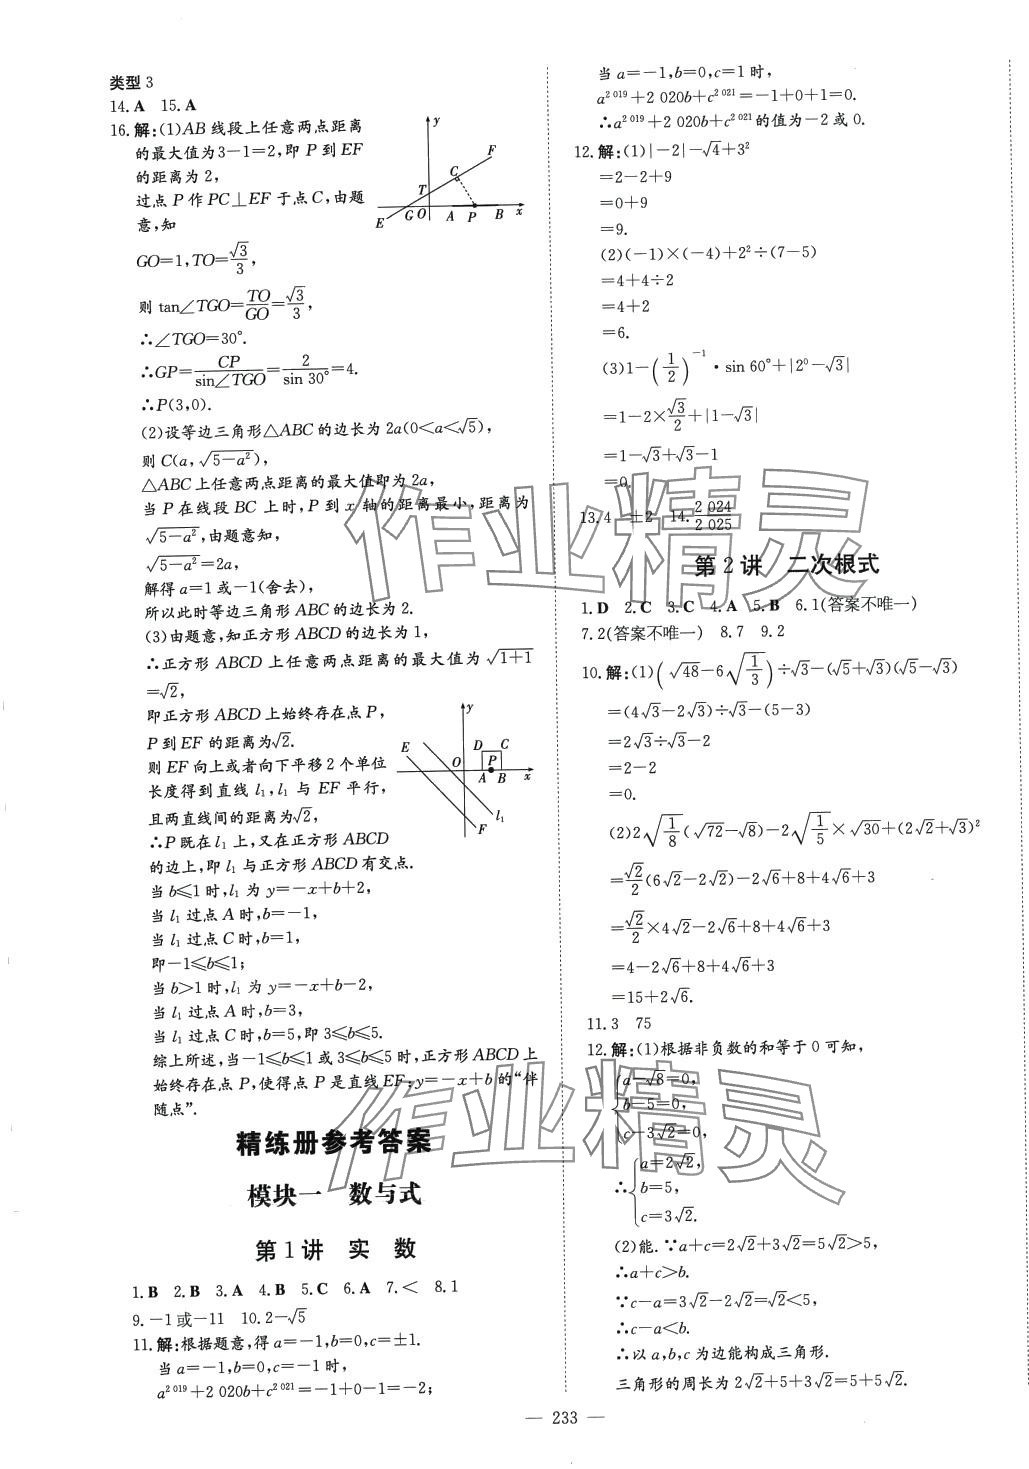 类型 3
14. A　15. A
16. 解:(1)AB 线段上任意两点距离
的最大值为3-1=2,即 P 到 EF
的距离为 2,
过点 P 作 PC⊥EF 于点 C,由题
意,知
GO=1,TO=√3/3,
则 tan∠TGO=TO/GO=√3/3,
∴∠TGO=30°.
∴GP=CP/sin∠TGO=2/sin 30°=4.
∴P(3,0).
y
F
C
T
E
G O A P B x
(2)设等边三角形△ABC 的边长为 2a(0<a<√5),
则 C(a,√(5-a²)),
△ABC 上任意两点距离的最大值即为 2a,
当 P 在线段 BC 上时,P 到 x 轴的距离最小,距离为
√(5-a²),由题意知,
√(5-a²)=2a,
解得 a=1 或-1(舍去),
所以此时等边三角形 ABC 的边长为 2.
(3)由题意,知正方形 ABCD 的边长为 1,
∴正方形 ABCD 上任意两点距离的最大值为 √(1+1)
=√2,
即正方形 ABCD 上始终存在点 P,
P 到 EF 的距离为√2.
则 EF 向上或者向下平移 2 个单位
长度得到直线 l₁,l₁ 与 EF 平行,
且两直线间的距离为√2,
∴P 既在 l₁ 上,又在正方形 ABCD
的边上,即 l₁ 与正方形 ABCD 有交点.
y
E
D C
O P
A B x
F
l₁
当 b≤1 时,l₁ 为 y=-x+b+2,
当 l₁ 过点 A 时,b=-1,
当 l₁ 过点 C 时,b=1,
即-1≤b≤1;
当 b>1 时,l₁ 为 y=-x+b-2,
当 l₁ 过点 A 时,b=3,
当 l₁ 过点 C 时,b=5,即 3≤b≤5.
综上所述,当-1≤b≤1 或 3≤b≤5 时,正方形 ABCD 上
始终存在点 P,使得点 P 是直线 EF:y=-x+b 的“伴
随点”.
精练册参考答案
模块一　数与式
第 1 讲　实　数
1. B　2. B　3. A　4. B　5. C　6. A　7. <　8. 1
9. -1 或-11　10. 2-√5
11. 解:根据题意,得 a=-1,b=0,c=±1.
当 a=-1,b=0,c=-1 时,
a²⁰¹⁹+2 020b+c²⁰²¹=-1+0-1=-2;
当 a=-1,b=0,c=1 时,
a²⁰¹⁹+2 020b+c²⁰²¹=-1+0+1=0.
∴a²⁰¹⁹+2 020b+c²⁰²¹的值为-2 或 0.
12. 解:(1)|-2|-√4+3²
=2-2+9
=0+9
=9.
(2)(-1)×(-4)+2²÷(7-5)
=4+4÷2
=4+2
=6.
(3)1-(1/2)⁻¹·sin 60°+|2⁰-√3|
=1-2×√3/2+|1-√3|
=1-√3+√3-1
=0.
13. 4　±2　14. 2 024/2 025
第 2 讲　二次根式
1. D　2. C　3. C　4. A　5. B　6. 1(答案不唯一)
7. 2(答案不唯一)　8. 7　9. 2
10. 解:(1)(√48-6√(1/3))÷√3-(√5+√3)(√5-√3)
=(4√3-2√3)÷√3-(5-3)
=2√3÷√3-2
=2-2
=0.
(2)2√(1/8)(√72-√8)-2√(1/5)×√30+(2√2+√3)²
=√2/2(6√2-2√2)-2√6+8+4√6+3
=√2/2×4√2-2√6+8+4√6+3
=4-2√6+8+4√6+3
=15+2√6.
11. 3　75
12. 解:(1)根据非负数的和等于 0 可知,
a-√8=0,
b-5=0,
c-3√2=0,
∴ a=2√2,
b=5,
c=3√2.
(2)能. ∵a+c=2√2+3√2=5√2>5,
∴a+c>b.
∵c-a=3√2-2√2=√2<5,
∴c-a<b.
∴以 a,b,c 为边能构成三角形.
三角形的周长为 2√2+5+3√2=5+5√2.
— 233 —
作业精灵
作业精灵